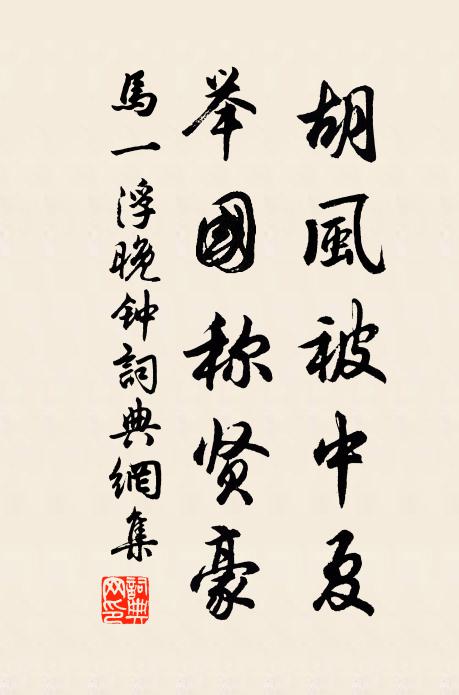 胡風被中夏
举國称贤豪
馬一浮晚钟詞典網集
詞典网印